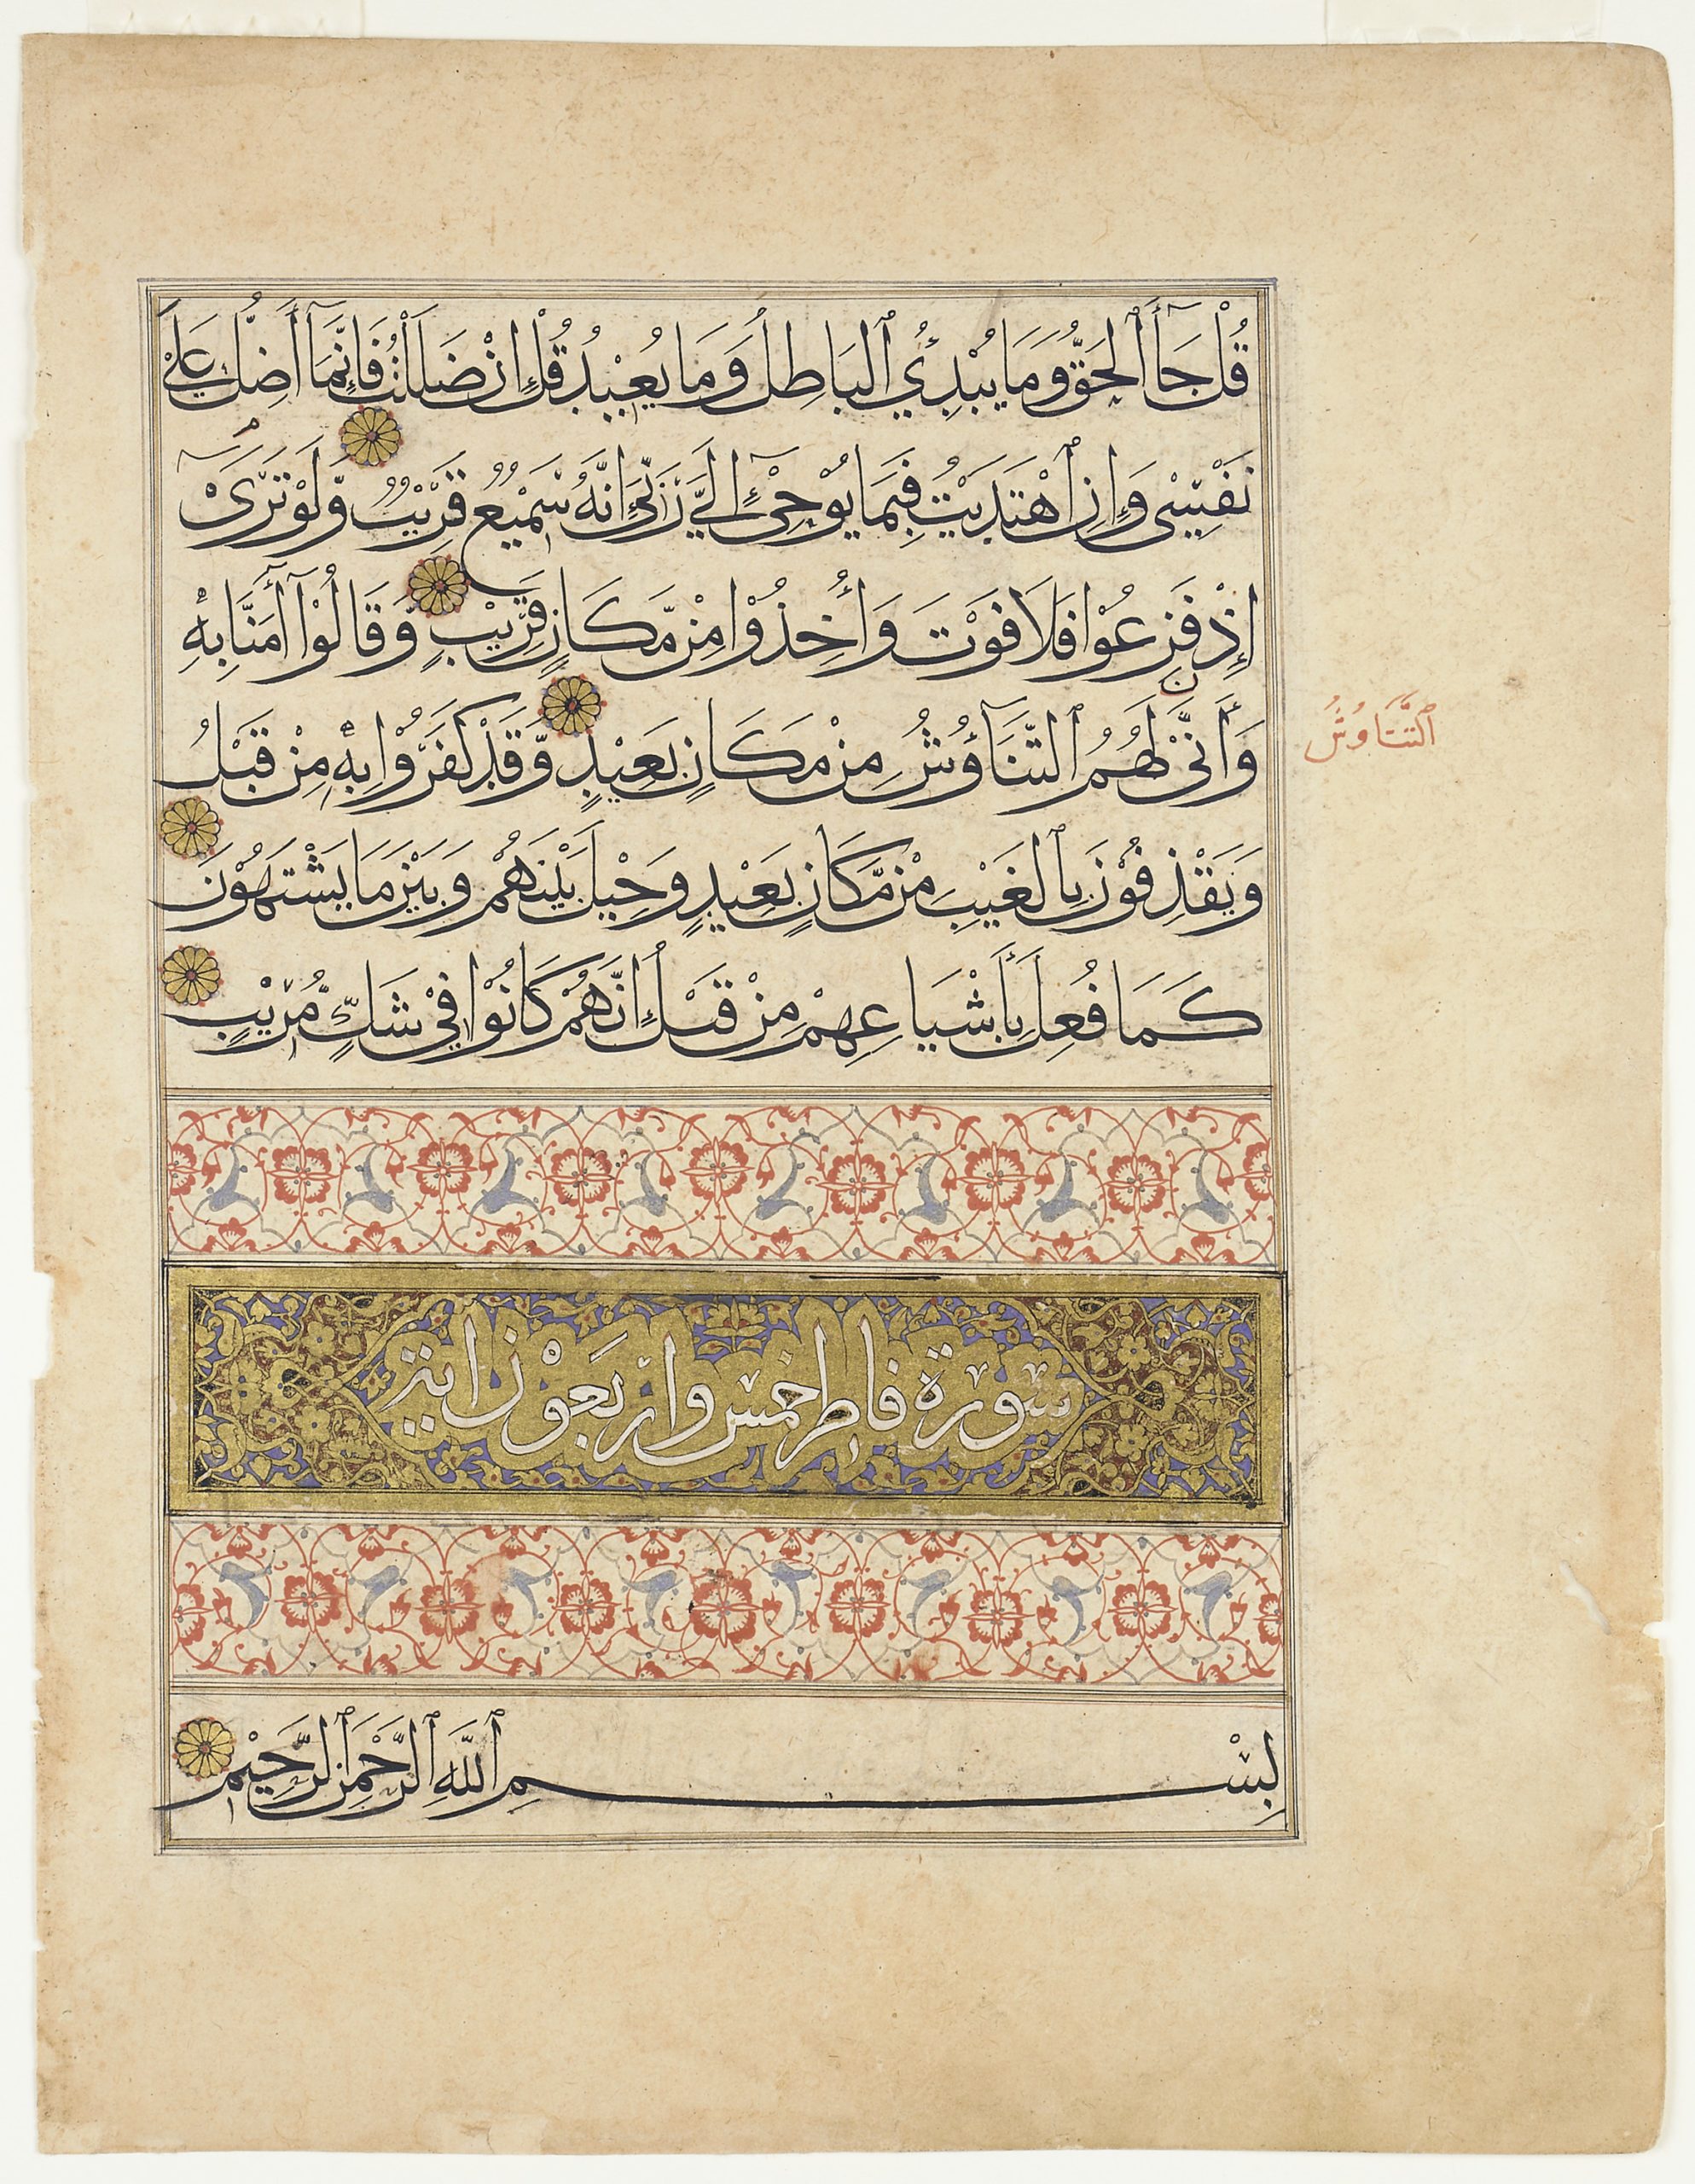 قُلْ جَآءَ ٱلْحَقُّ وَمَا يُبْدِئُ ٱلْبَاطِلُ وَمَا يُعِيْدُ قُلْ إِنْ ضَلَلْتُ فَإِنَّمَآ أَضِلُّ عَلَىٰ
نَفْسِىْ وَإِنِ ٱهْتَدَيْتُ فَبِمَا يُوْحِىْٓ إِلَىَّ رَبِّىْ إِنَّهُ سَمِيْعٌ قَرِيْبٌ وَلَوْ تَرَىْٓ
إِذْ فَزِعُوْا فَلَا فَوْتَ وَأُخِذُوْا مِنْ مَّكَانٍ قَرِيْبٍ وَّقَالُوْآ أٰمَنَّا بِهِ
وَأَنّٰى لَهُمُ ٱلتَّنَآؤُشُ مِنْ مَكَانٍ بَعِيْدٍ وَّقَدْ كَفَرُوْا بِهِ مِنْ قَبْلُ
ٱلتَّنَاوُشُ
وَيَقْذِفُوْنَ بِالْغَيْبِ مِنْ مَّكَانٍ بَعِيْدٍ وَحِيْلَ بَيْنَهُمْ وَبَيْنَ مَا يَشْتَهُوْنَ
كَمَا فُعِلَ بِأَشْيَاعِهِمْ مِنْ قَبْلُ إِنَّهُمْ كَانُوْا فِيْ شَكٍّ مُّرِيْبٍ
سورة فاطر خمس واربعون اية
بِسْمِ ٱللَّهِ ٱلرَّحْمٰنِ ٱلرَّحِيْمِ